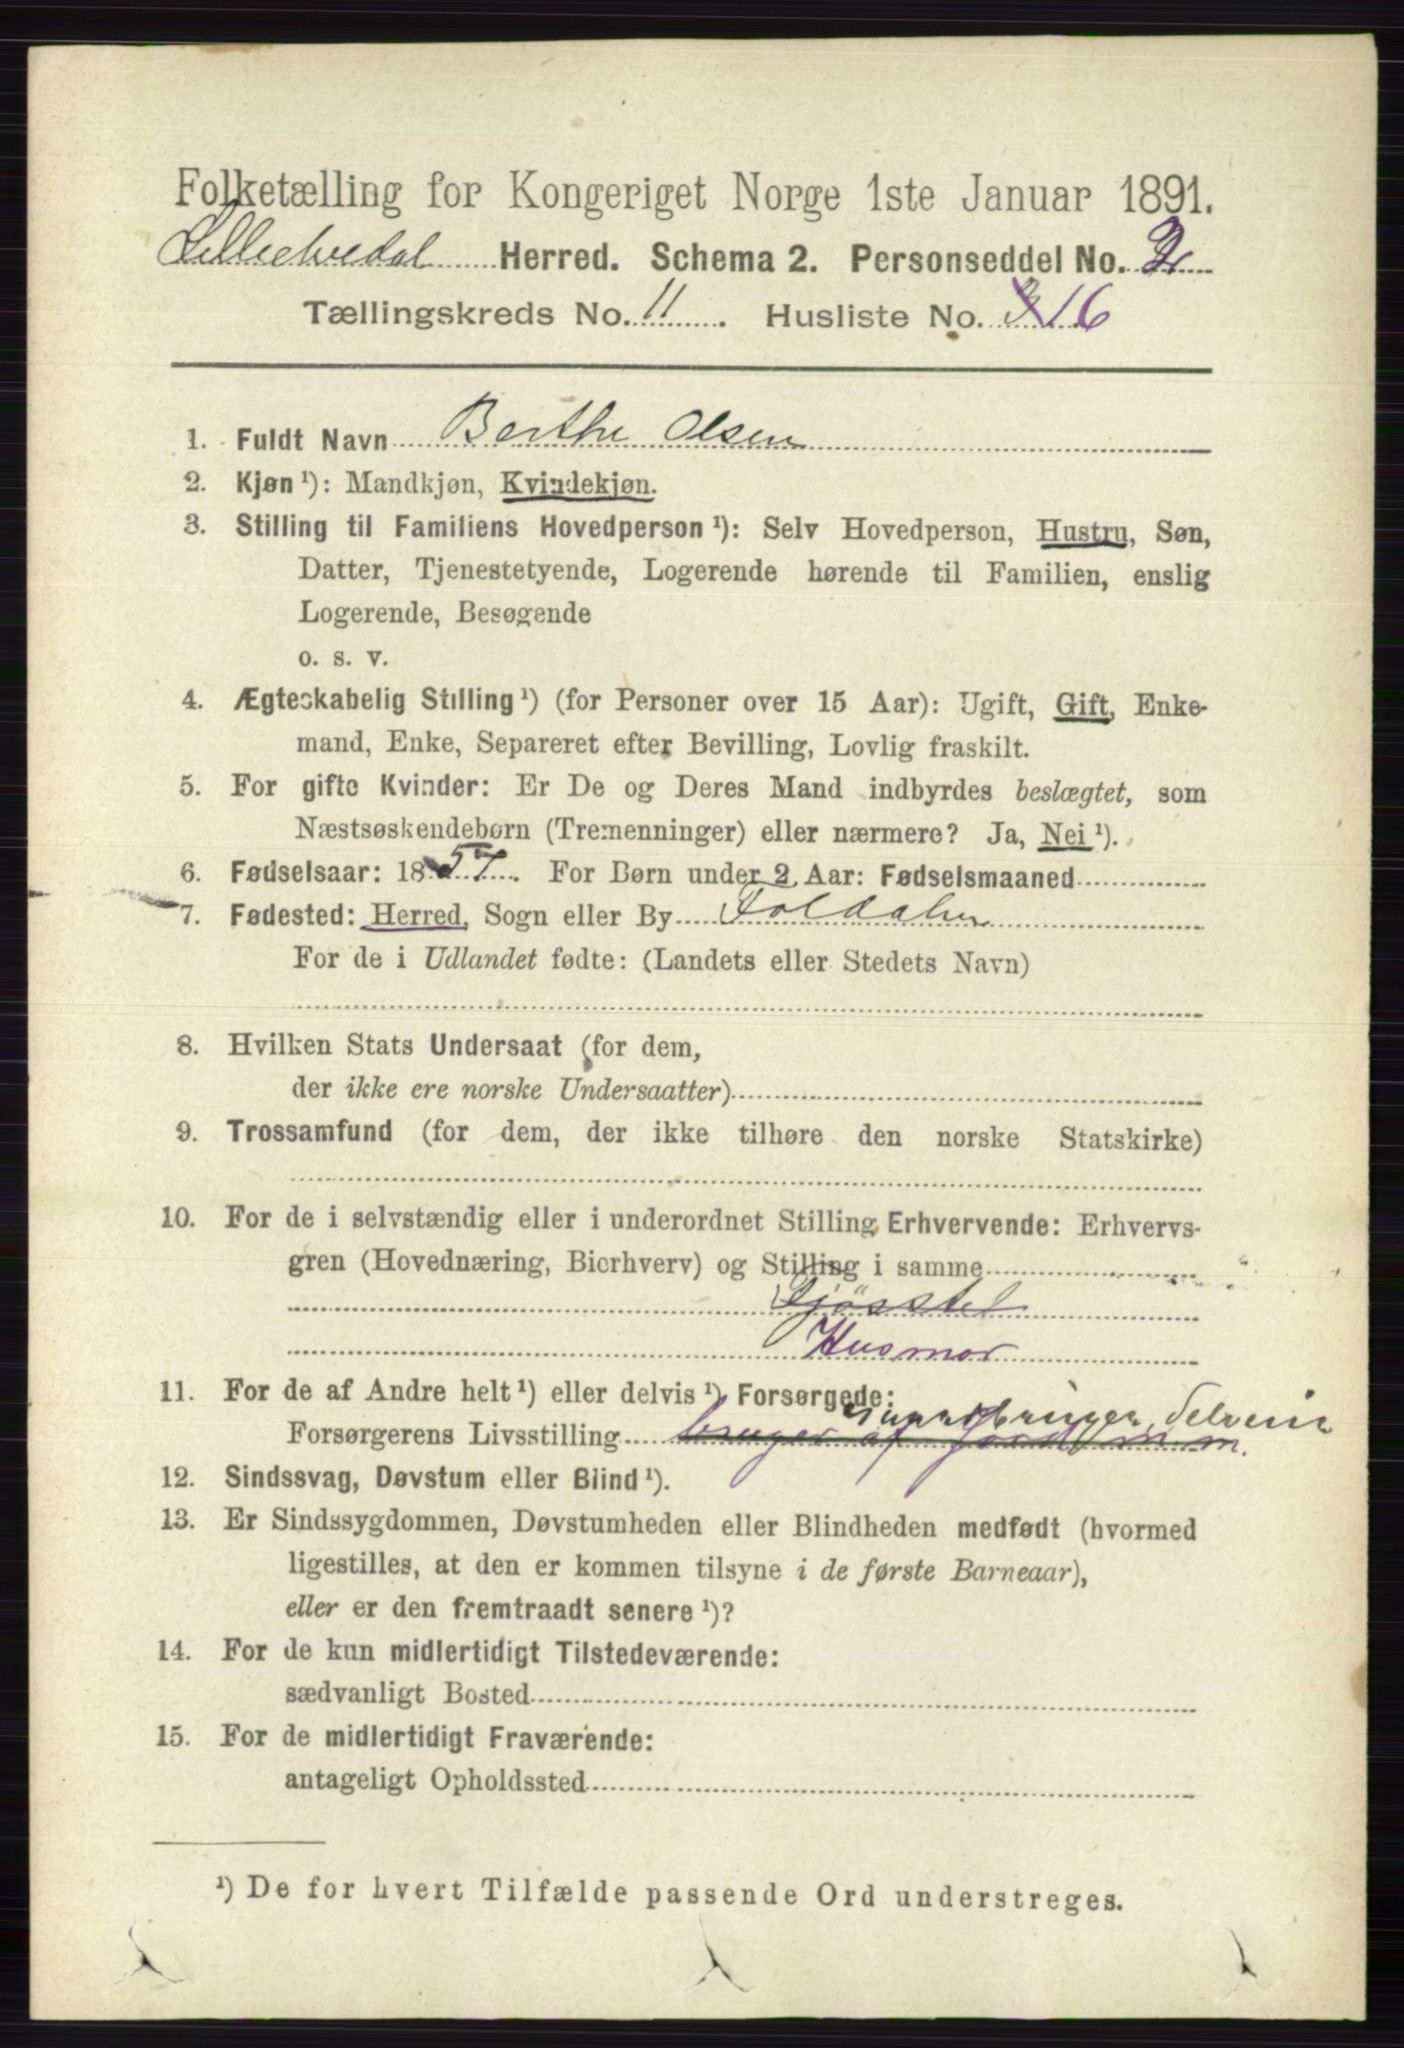 Folketælling for Kongeriget Norge 1ste Januar 1891.
Lilleelvedal Herred. Schema 2. Personseddel No. 2
Tællingskreds No. 11. Husliste No. 3 16
1. Fuldt Navn Berthe Olsen
2. Kjøn ¹): Mandkjøn, Kvindekjøn.
3. Stilling til Familiens Hovedperson ¹): Selv Hovedperson, Hustru, Søn,
Datter, Tjenestetyende, Logerende hørende til Familien, enslig
Logerende, Besøgende
o. s. v.
4. Ægteskabelig Stilling ¹) (for Personer over 15 Aar): Ugift, Gift, Enke-
mand, Enke, Separeret efter Bevilling, Lovlig fraskilt.
5. For gifte Kvinder: Er De og Deres Mand indbyrdes beslægtet, som
Næstsøskendebørn (Tremenninger) eller nærmere? Ja, Nei ¹).
6. Fødselsaar: 1857. For Børn under 2 Aar: Fødselsmaaned
7. Fødested: Herred, Sogn eller By Foldalen
For de i Udlandet fødte: (Landets eller Stedets Navn)
8. Hvilken Stats Undersaat (for dem,
der ikke ere norske Undersaatter)
9. Trossamfund (for dem, der ikke tilhøre den norske Statskirke)
10. For de i selvstændig eller i underordnet Stilling Erhvervende: Erhvervs-
gren (Hovednæring, Bierhverv) og Stilling i samme
Fjösstel
Husmor
11. For de af Andre helt ¹) eller delvis ¹) Forsørgede:
Gaardbruger, Selveier
Forsørgerens Livsstilling bruger af Jord m. m.
12. Sindssvag, Døvstum eller Blind ¹).
13. Er Sindssygdommen, Døvstumheden eller Blindheden medfødt (hvormed
ligestilles, at den er kommen tilsyne i de første Barneaar),
eller er den fremtraadt senere ¹)?
14. For de kun midlertidigt Tilstedeværende:
sædvanligt Bosted
15. For de midlertidigt Fraværende:
antageligt Opholdssted
¹) De for hvert Tilfælde passende Ord understreges.